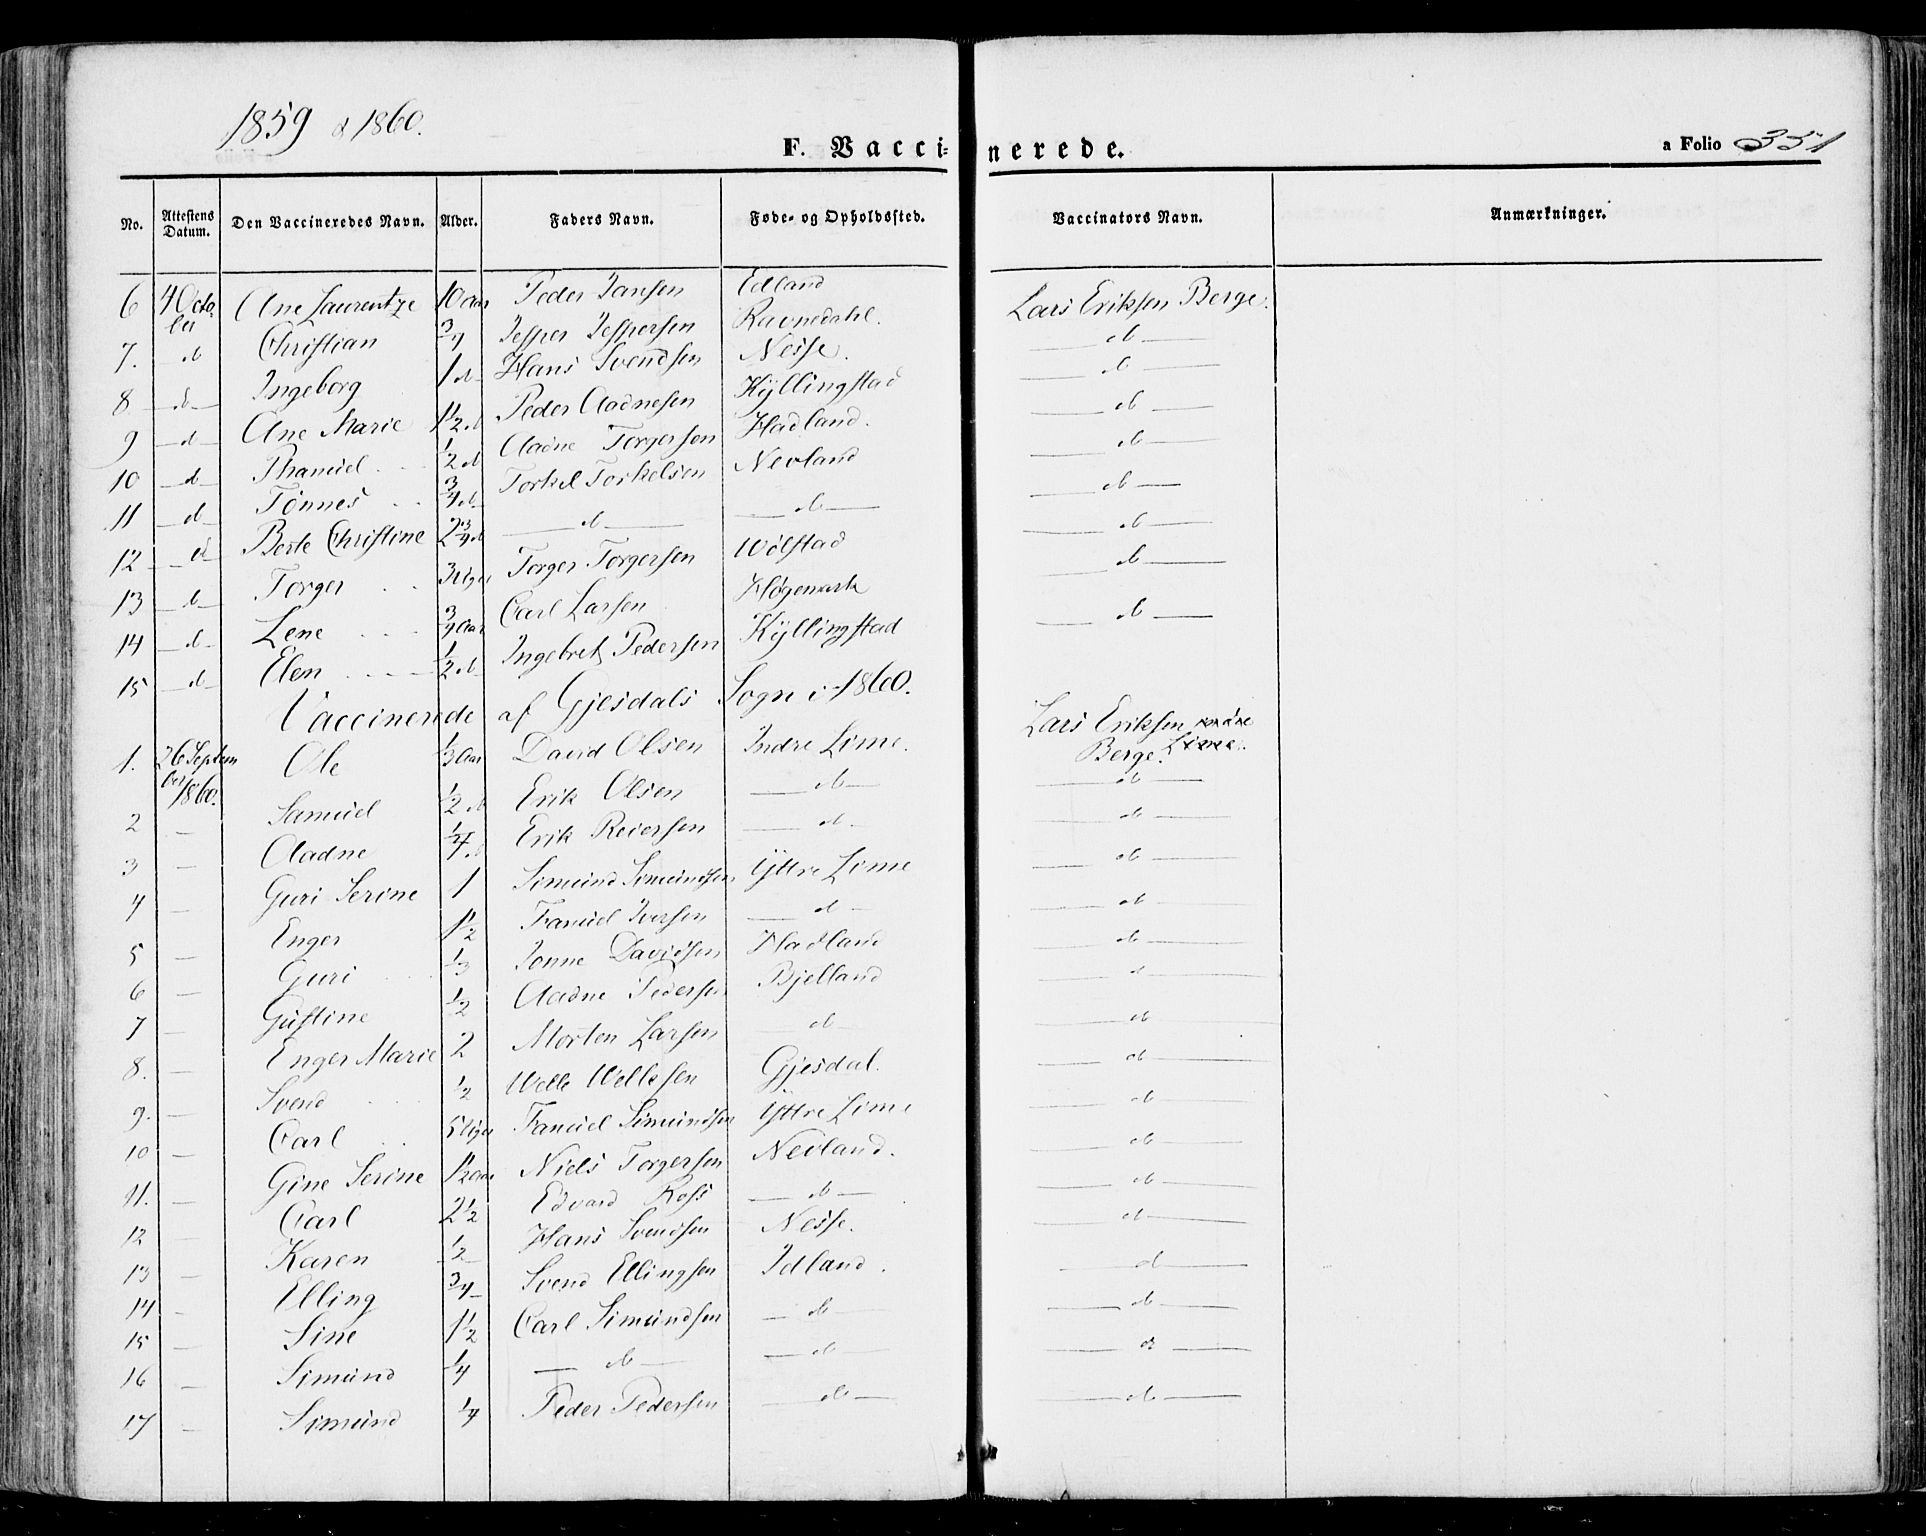 1859 & 1860.
F. Vacci- nerede.
a Folio 351
No. Attestens Datum. Den Vaccineredes Navn. Alder. Faders Navn. Føde- og Opholdssted. Vaccinators Navn. Anmærkninger.
6 4 Octo- ber Ane Laurentze 10 Aar Peder Jansen Edland Lars Eriksen Berge.
7. d Christian 3/4 Jesper Jespersen Ravnedahl. d
8 d Ingeborg 1 d Hans Svendsen Nesse. d
9 d Ane Marie 1 1/2 d Peder Aadnesen Kyllingstad d
10 d Thanuel 1/2 d Aadne Torgersen Hadland. d
11 d Tönnes 3/4 d Torkel Torkelsen Nevland d
12 d Berte Christine 2 3/4 d d d d
13 d Torger 3 Uger Torger Torgersen Wölstad d
14 d Lene 3/4 Aar Carl Larsen Høgemark
15 d Elen 1/2 d Ingebret Pedersen Kyllingstad d
Vaccinerede af Gjesdals Sogn i 1860.
1. 26 Septem ber 1860. Ole 1/3 Aar David Olsen Indre Lime. Lars Eriksen Berge.
2 — Samuel 1/2 d Erik Olsen d d
3 — Aadne 1/4 d Erik Reiersen d d
4 — Guri Serine 1 Simund Simundsen Yttre Lime d
5 — Enger 1 1/2 Fanuel Iversen d d
6 — Guri 1/3 Jonne Davidsen Hadland d
7 — Gustine 1/2 Aadne Pedersen Bjelland d
8. — Enger Marie 2 Morten Larsen d d
9. — Svend 1/2 Welle Wellesen Gjesdal. d
10 — Carl 5 Uger Fanuel Simundsen Yttre Lime d
11. — Gine Serine 1 1/2 Aar Niels Torgersen Nevland. d
12 — Carl 2 1/2 Edvard Ross d d
13 — Karen 1/2 Hans Svendsen Nesse. d
14 — Elling 3/4 Svend Ellingsen Idland. d
15 — Sine 1 1/2 Carl Simundsen d d
16 — Simund 1/4 d d d
17 — Simund 1/4 Peder Pedersen d d